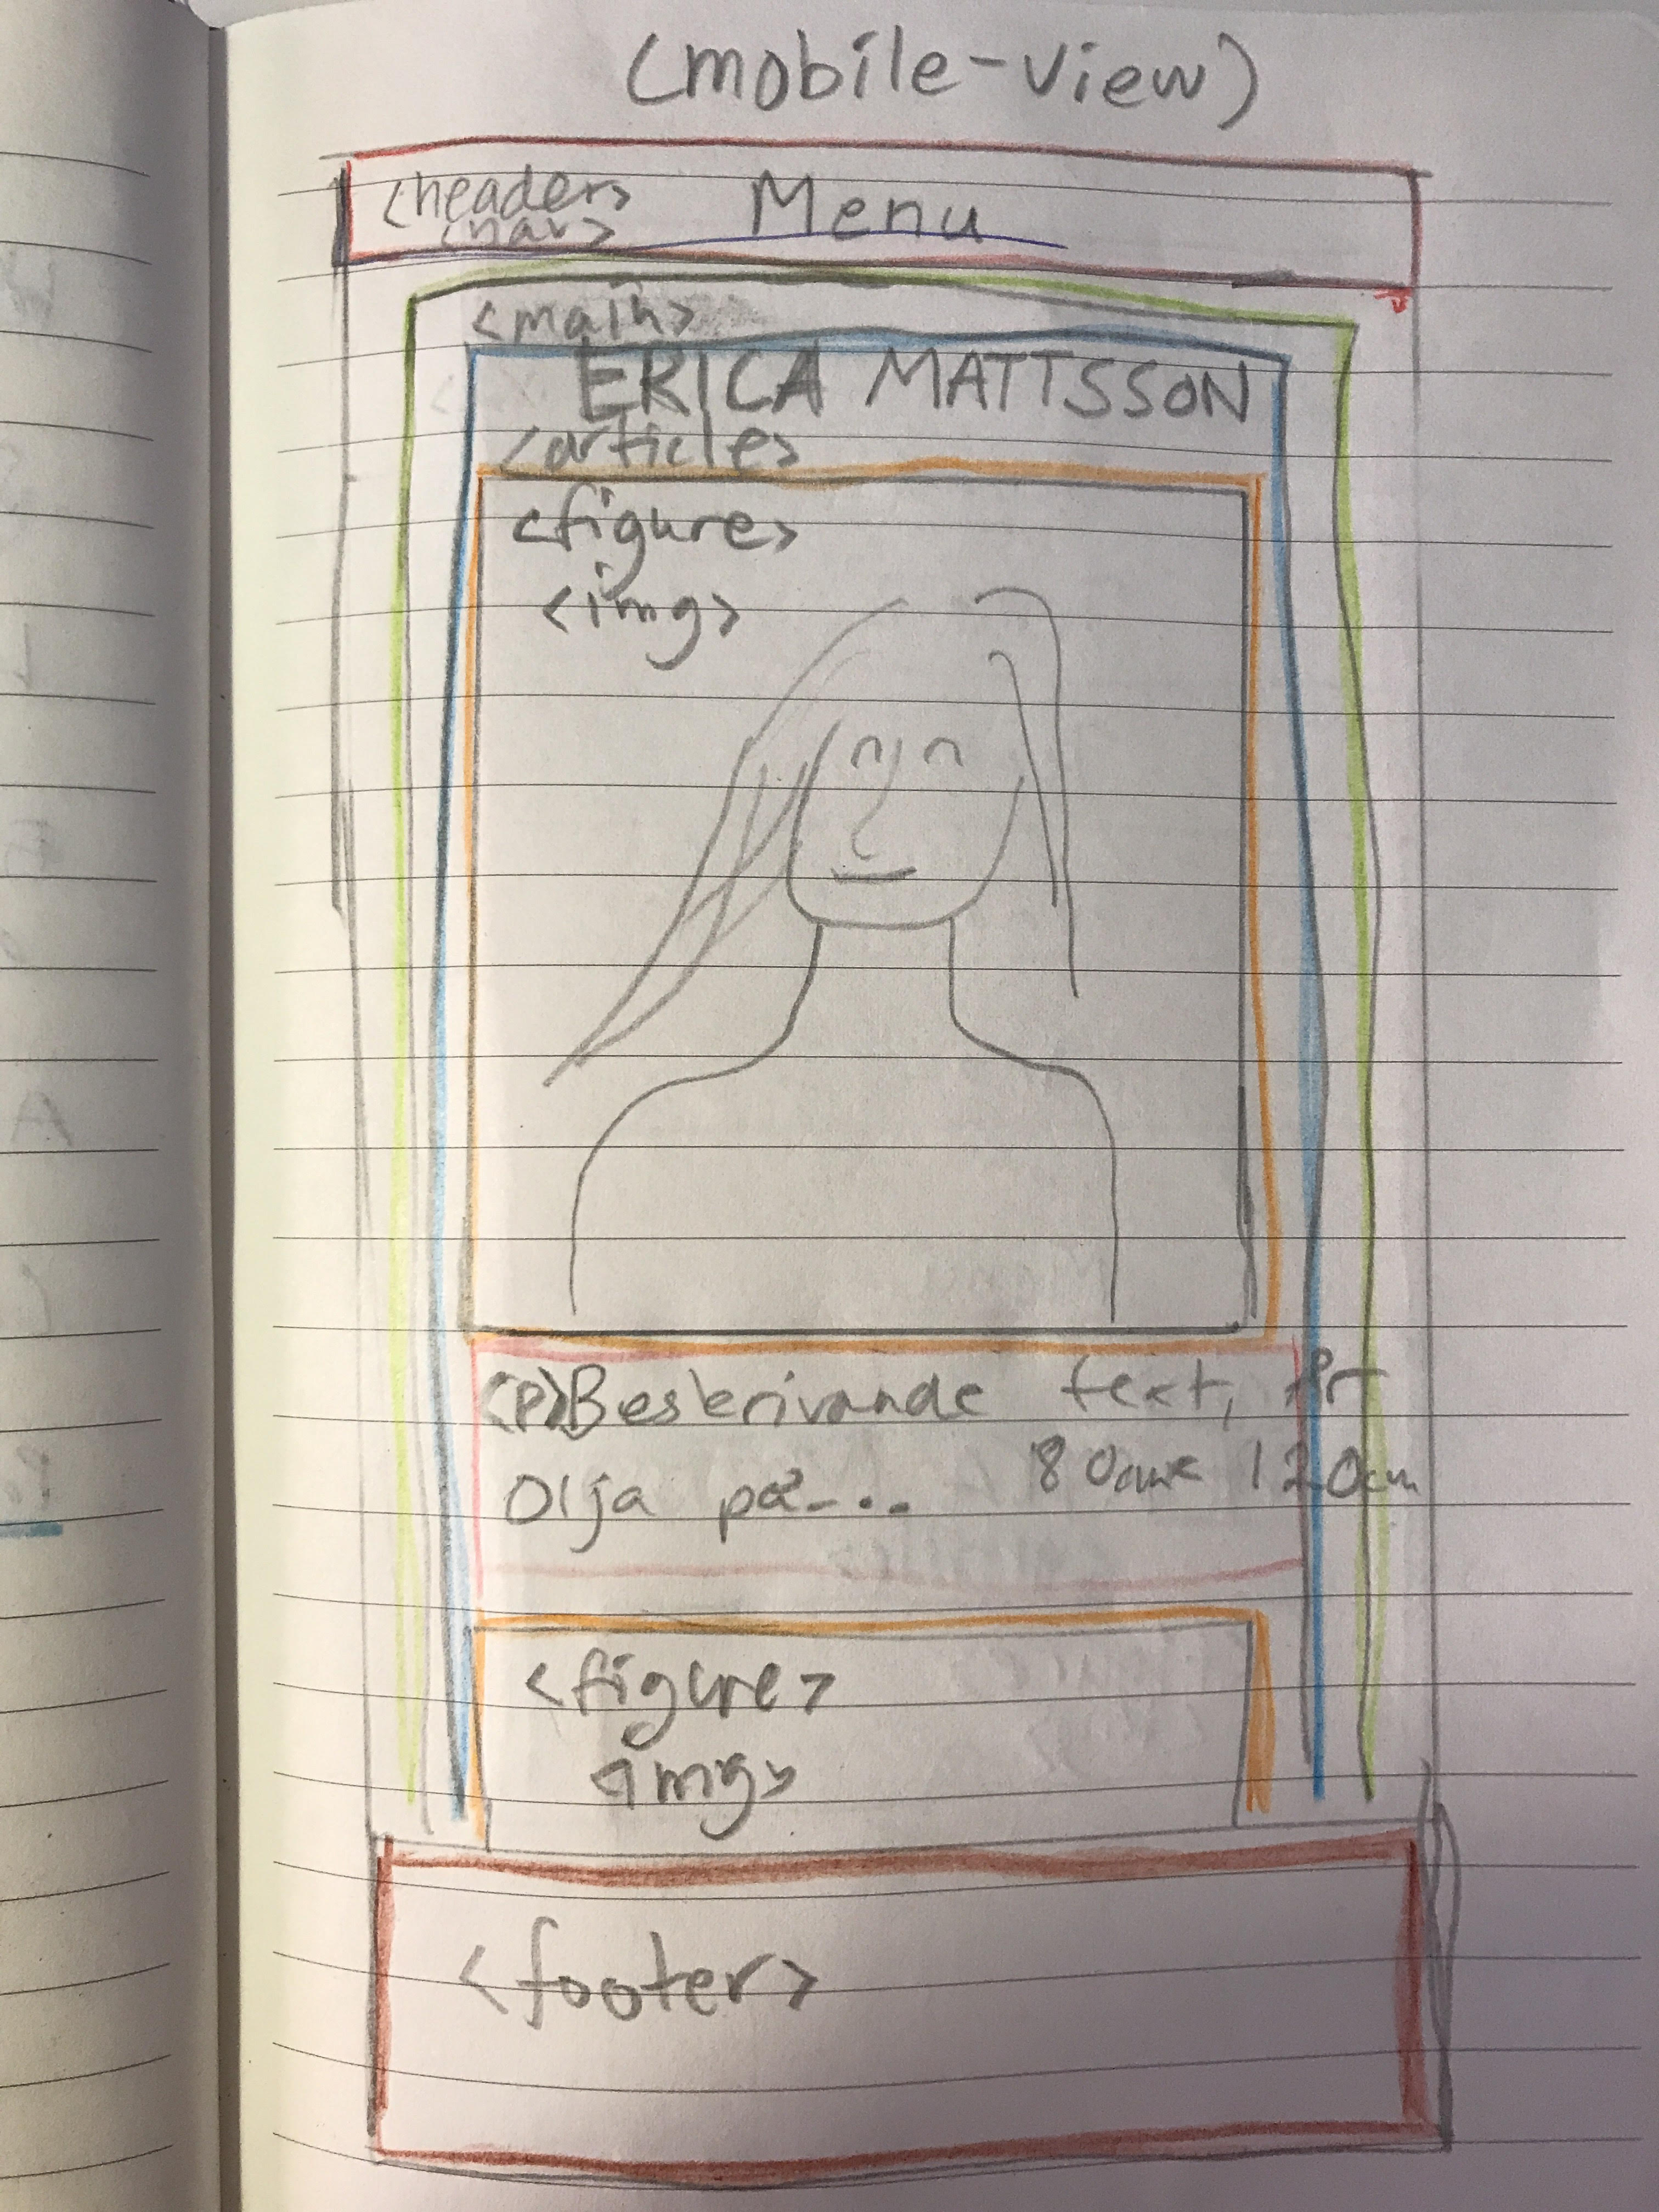 (mobile-view)
<header> Menu
<nav>
<main>
ERICA MATTSSON
<article>
<figure>
<img>
<p>Beskrivande text, Pr
Olja på-... 80cm x 120cm
<figure>
<img>
<footer>